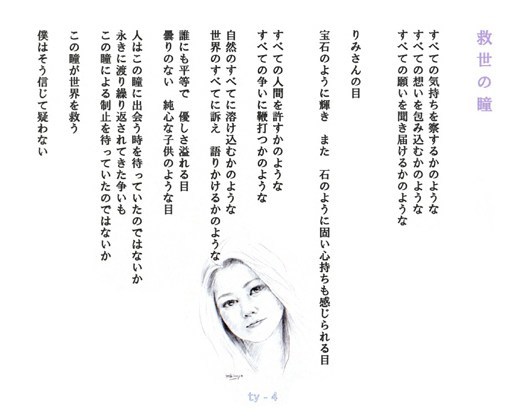 救世の瞳
すべての気持ちを察するかのような
すべての想いを包み込むかのような
すべての願いを聞き届けるかのような
りみさんの目
宝石のように輝き　また　石のように固い心持ちも感じられる目
すべての人間を許すかのような
すべての争いに鞭打つかのような
自然のすべてに溶け込むかのような
世界のすべてに訴え　語りかけるかのような
誰にも平等で　優しさ溢れる目
曇りのない　純心な子供のような目
人はこの瞳に出会う時を待っていたのではないか
永きに渡り繰り返されてきた争いも
この瞳による制止を待っていたのではないか
この瞳が世界を救う
僕はそう信じて疑わない
ty - 4